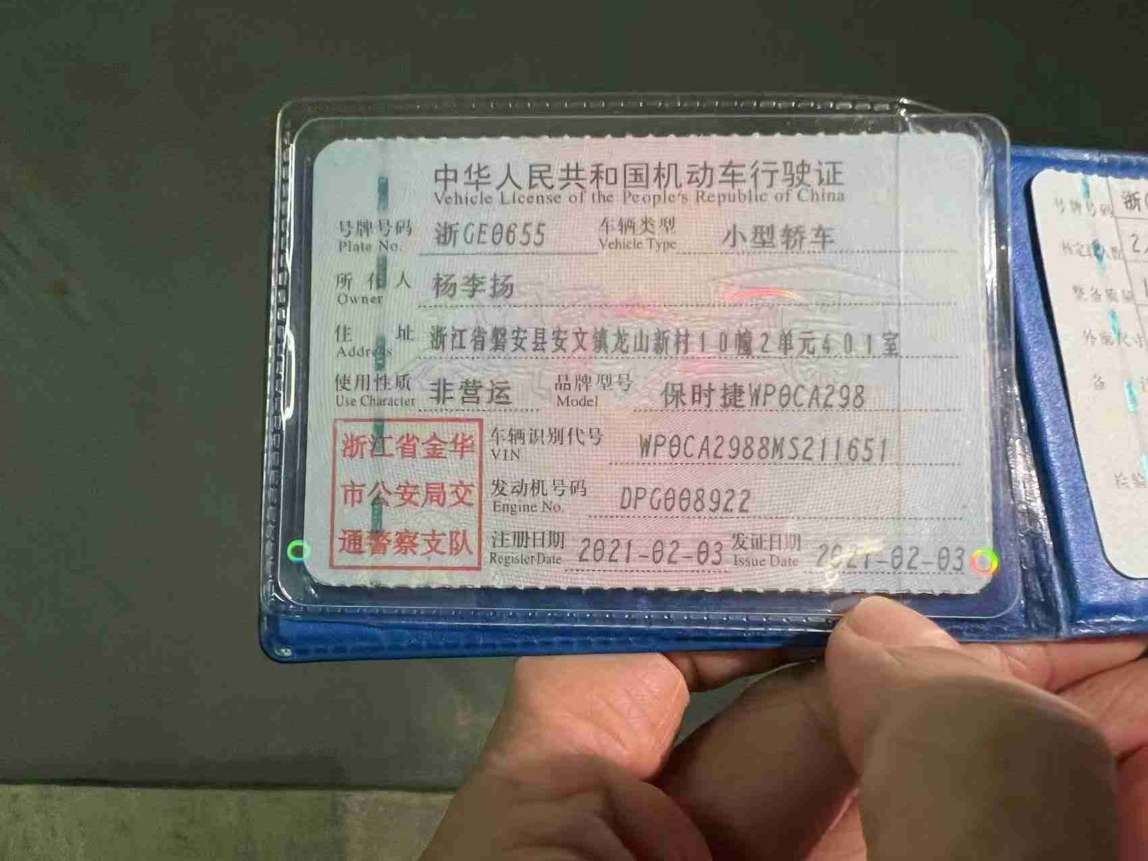 中华人民共和国机动车行驶证
Vehicle License of the People's Republic of China
号牌号码 浙GE0655 车辆类型 小型轿车
Plate No. Vehicle Type
所有人 杨李扬
Owner
住址 浙江省磐安县安文镇龙山新村10幢2单元401室
Address
使用性质 非营运 品牌型号 保时捷WP0CA298
Use Character Model
浙江省金华
市公安局交
通警察支队
车辆识别代号 WP0CA2988MS211651
VIN
发动机号码 DPG008922
Engine No.
注册日期 2021-02-03 发证日期 2021-02-03
Register Date Issue Date
号牌号码 浙
整备质量
外廓尺寸
备
检验